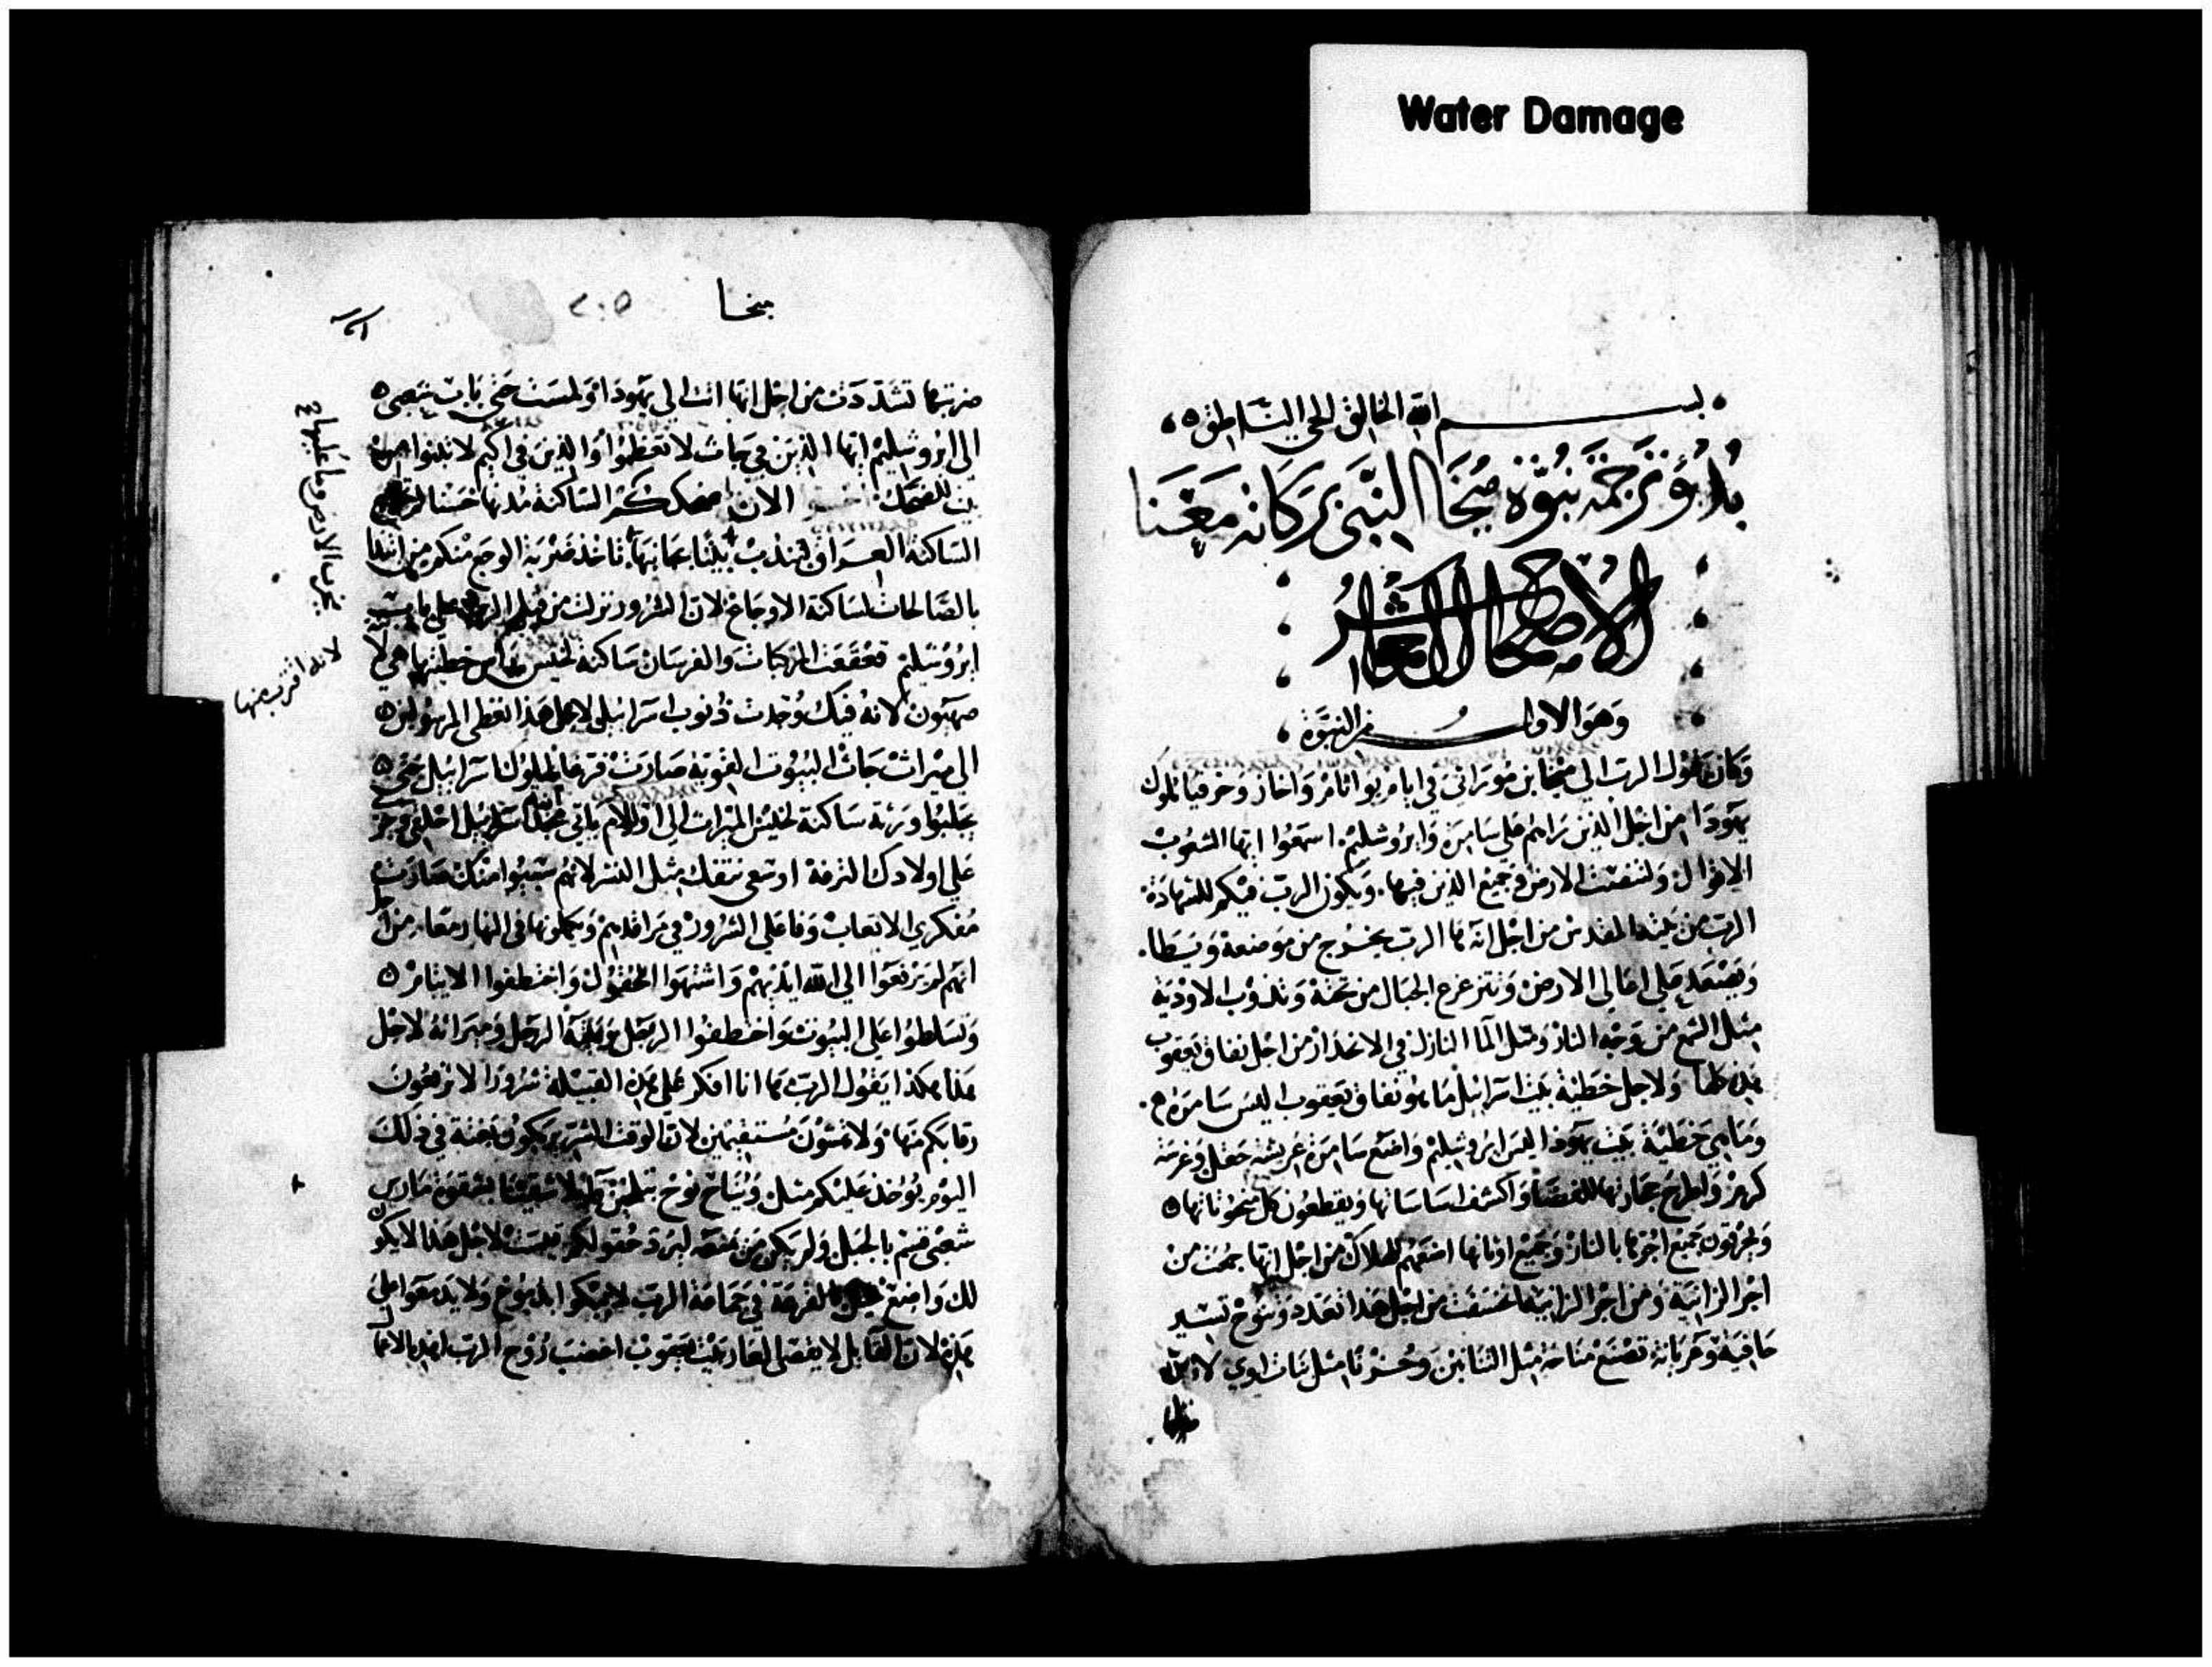 Water Damage
بسم الله الخالق الحي الناطق
بدؤ ترجمة نبوة ميخا النبي بركاته معنا
الاصحاح العاشر
وهو الاول من النبوة
وكان قول الرب الي ميخا بن موراثي في ايام يواثام واحاز وحزقيا ملوك
يهودا من اجل الذين راهم علي سامرة وايروشليم. اسمعوا ايها الشعوب
الاقوال ولتنصت الارض وجميع الذين فيها. ويكون الرب فيكم للشهادة
الرب من بيته المقدس من اجل انه ها الرب يخرج من موضعه ويطا.
ويصعد علي اعالي الارض وتتزعزع الجبال من تحته وتذوب الاودية
مثل الشمع من وجه النار ومثل الما النازل في الانحدار من اجل نفاق يعقوب
هذه كلها ولاجل خطية بيت اسرائيل ما هو نفاق يعقوب اليس سامرة
وما هي خطية بيت يهودا اليس ايروشليم واضع سامرة عريشة حقل وغرسة
كرم واطرح حجارتها واكشف اساساتها ويقطعون كل منحوتاتها
ويحرقون جميع اجرتها بالنار وجميع اوثانها اضعهم للهلاك من اجل انها جمعت من
اجر الزانية ومن اجر الزانية من اجل هذا تعدد وتنوح تسير
حافية وعريانة تصنع مناحة مثل التنانين وحزنا مثل بنات اوي لان
ميخا
٢٠٥
ضربتها تشددت من اجل انها اتت الي يهودا ولمست حتي باب شعبي
الي ايروشليم ايها الذين في جاث لا تعظموا والذين في اكيم لا تبنوا من
بيت للضحك الان ضحككم الساكنة مدنها حسنا لم تخرج
الساكنة بيتا بجانبها تاخذ ضربة الوجع منكم من ابتدا
بالصالحات لساكنة الاوجاع لان الشرور نزلت من قبل الرب علي باب
ايروشليم قعقعت المركبات والفرسان ساكنة لخيس هي
صهيون لانه فيك وجدت ذنوب اسرائيل لاجل هذا تعطي المرسولين
الي ميراث جاث البيوت صارت فرغا لملوك اسرائيل حتي
يجلبوا ورثة ساكنة لخيس الميراث الي ادولام ياتي مجد اسرائيل احلقي وجزي
علي اولادك الترفة اوسعي نتفك مثل النسر لانهم سبيوا منك صارت
مفكري الاتعاب وفاعلي الشرور في مراقدهم ويكملونها في النهار معا. من اجل
انهم لم يرفعوا الي الله ايديهم واشتهوا الحقول واختطفوا الايتام
وتسلطوا علي البيوت واختطفوا الرجل وبيته الرجل وميراثه لاجل
هذا هكذا يقول الرب ها انا افكر علي هذه القبيلة شرورا لا ترفعون
رقابكم منها ولا تمشون مستقيمين لان الوقت الشرير يكون بغتة في ذلك
اليوم يوخذ عليكم مثل ويناح نوح
شعبي قسم بالحبل ولم يكن من يمنعه ليرد حقولكم قسمت لاجل هذا لا يكون
لك واضع القرعة في جماعة الرب لا تبكوا بدموع ولا يدمعوا علي
هذه لان القايل لا يقصي العار بيت يعقوب اغضب روح الرب
يخرب الارض وما عليها
لانه اقرب منها